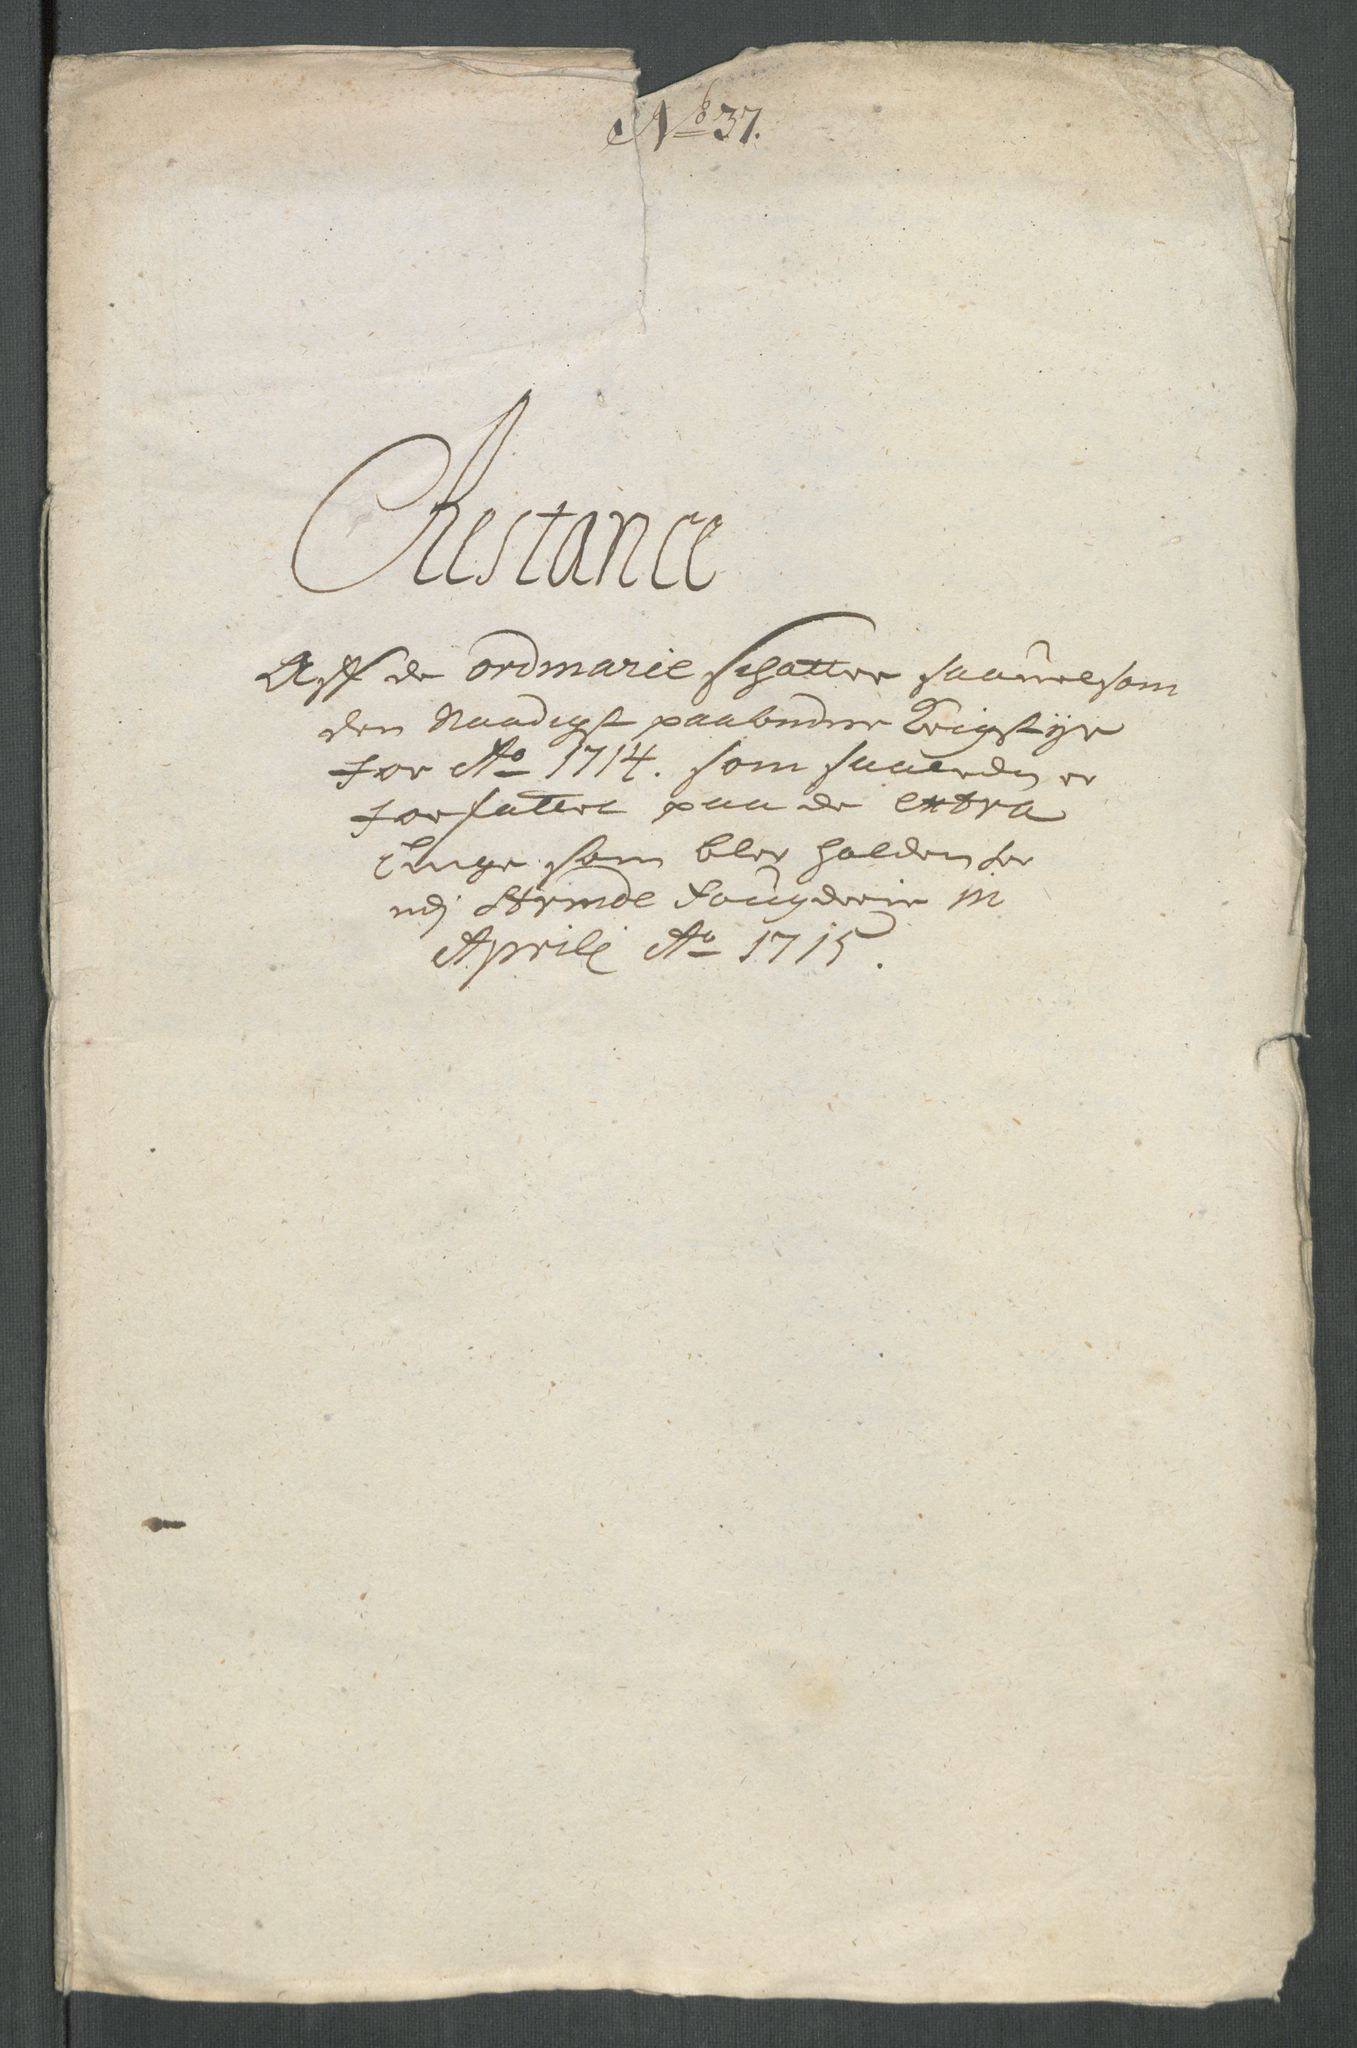 No 37.
Restance
Aff de ordinarie schatter saauelsom
den Naadigst paabudne Krigstÿr
for Ao 1714. som saaleedis er
forfattet paa de extra
Tinge som blev holden her
udj Strinde Fougderie in
Aprilj Ao 1715.